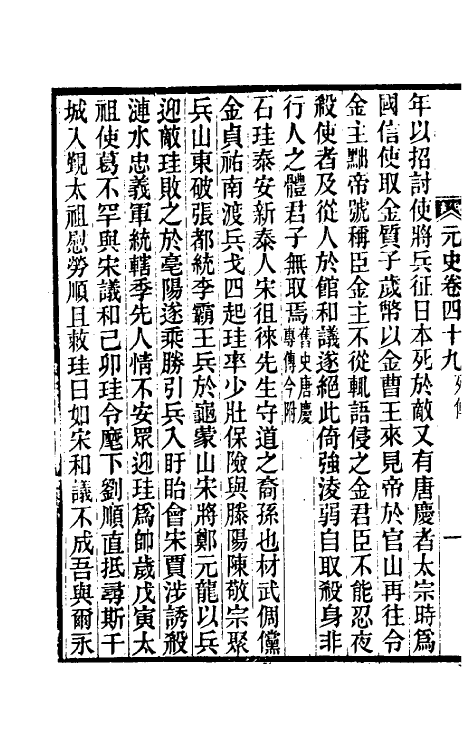 元史卷四十九 列傳 一
年以招討使將兵征日本死於敵又有唐慶者太宗時爲
國信使取金質子歲幣以金曹王來見帝於官山再往令
金主黜帝號稱臣金主不從輒語侵之金君臣不能忍夜
殺使者及從人於館和議遂絕此倚強淩弱自取殺身非
行人之體君子無取焉舊史唐慶專傳今附
石珪泰安新泰人宋徂徠先生守道之裔孫也材武倜儻
金貞祐南渡兵戈四起珪率少壯保險與滕陽陳敬宗聚
兵山東破張都統李霸王兵於龜蒙山宋將鄭元龍以兵
迎敵珪敗之於亳陽遂乘勝引兵入盱眙會宋賈涉誘殺
漣水忠義軍統轄季先人情不安眾迎珪爲帥歲戊寅太
祖使葛不罕與宋議和己卯珪令麾下劉順直抵尋斯干
城入覲太祖慰勞順且敕珪曰如宋和議不成吾與爾永